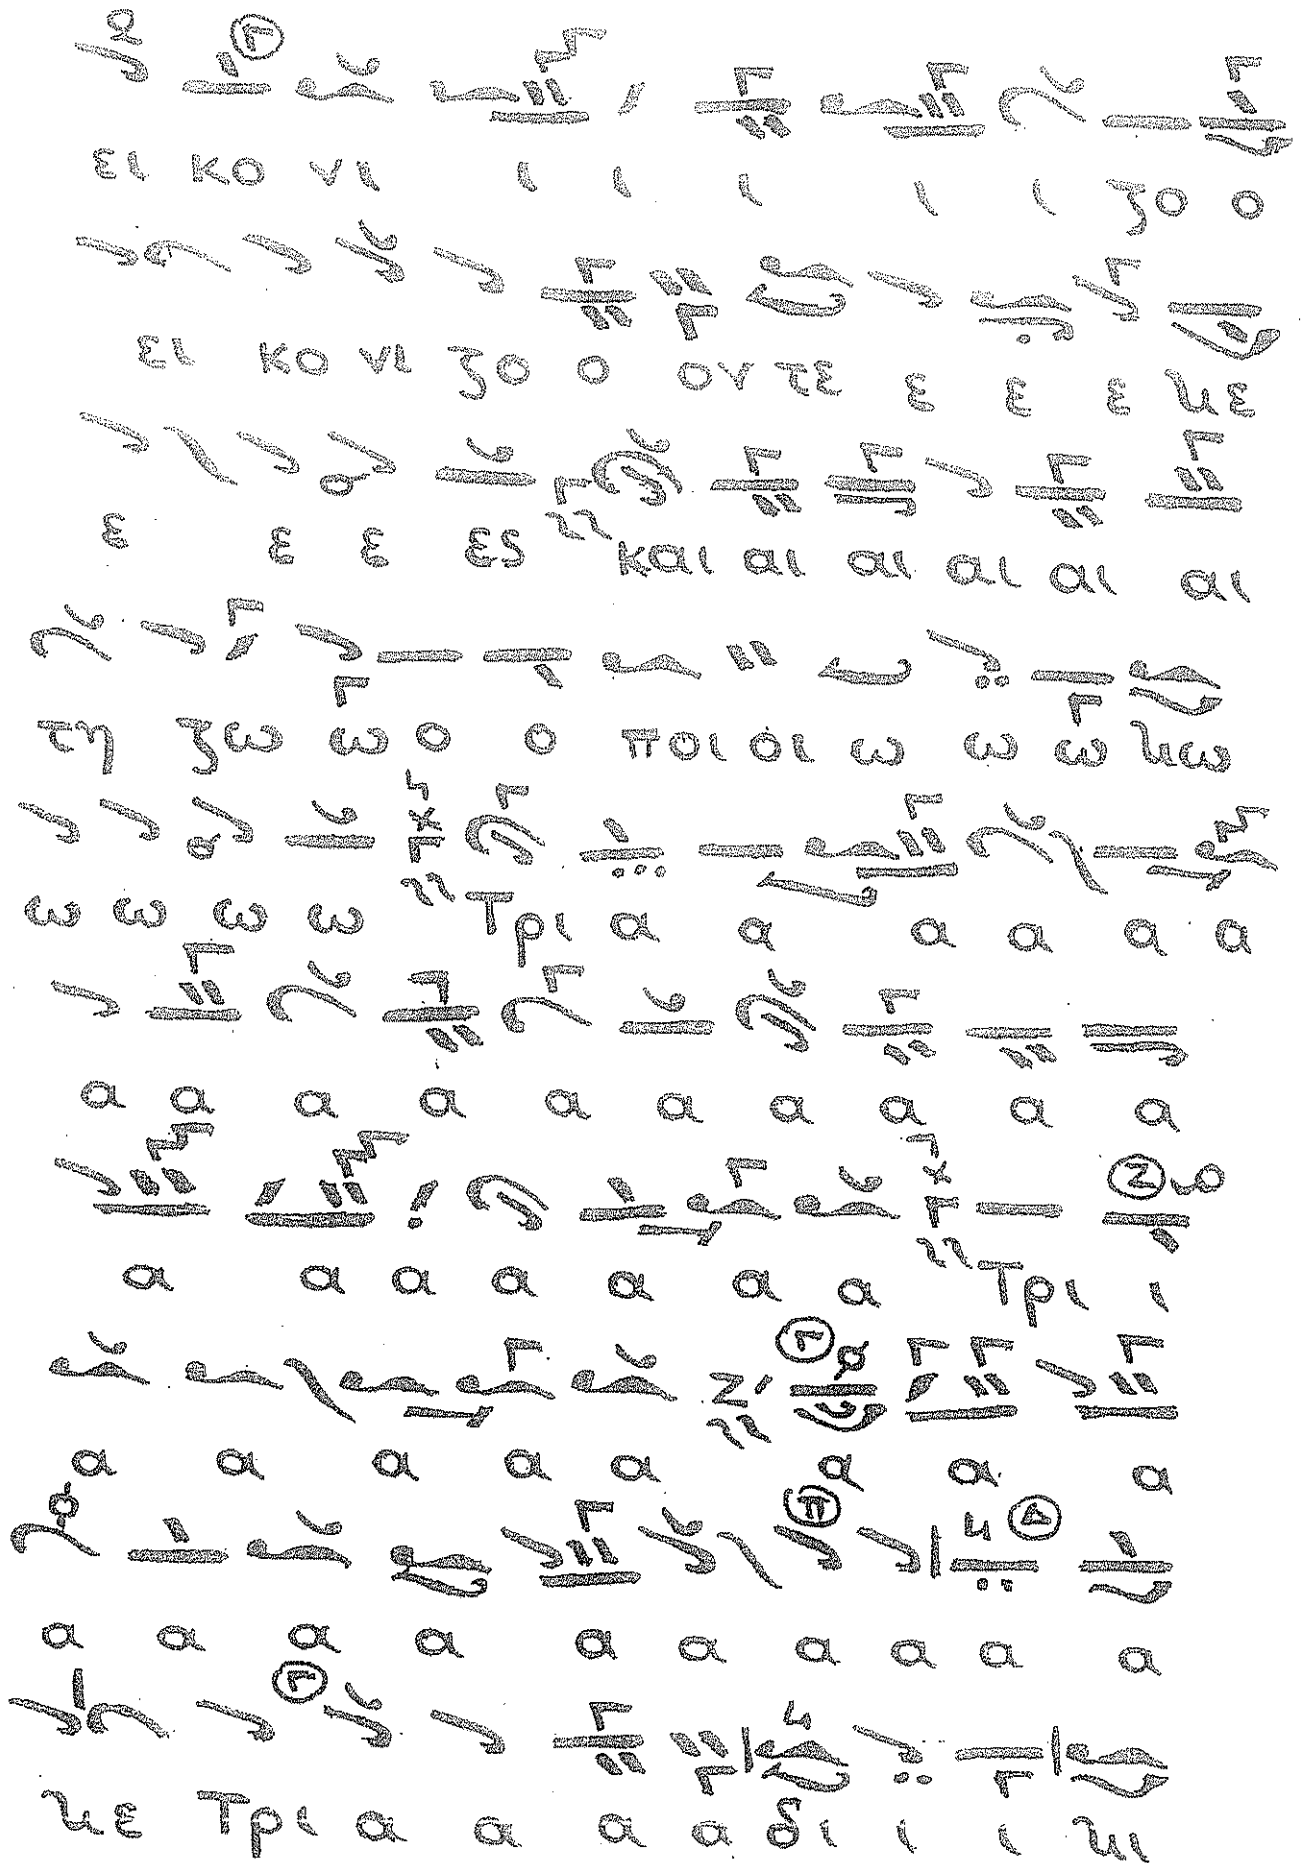 ει κο νι ι ι ι ι ι ζο ο
ει κο νι ζο ο ον τε ε ε ε με
ε ε ε ες και αι αι αι αι αι
τη ζω ω ο ο ποι οι ω ω ω μω
ω ω ω ω Τρι α α α α α α
α α α α α α α α α α
α α α α α α α Τρι ι
α α α α α α α α
α α α α α α α α α α
με Τρι α α α α δι ι ι μι